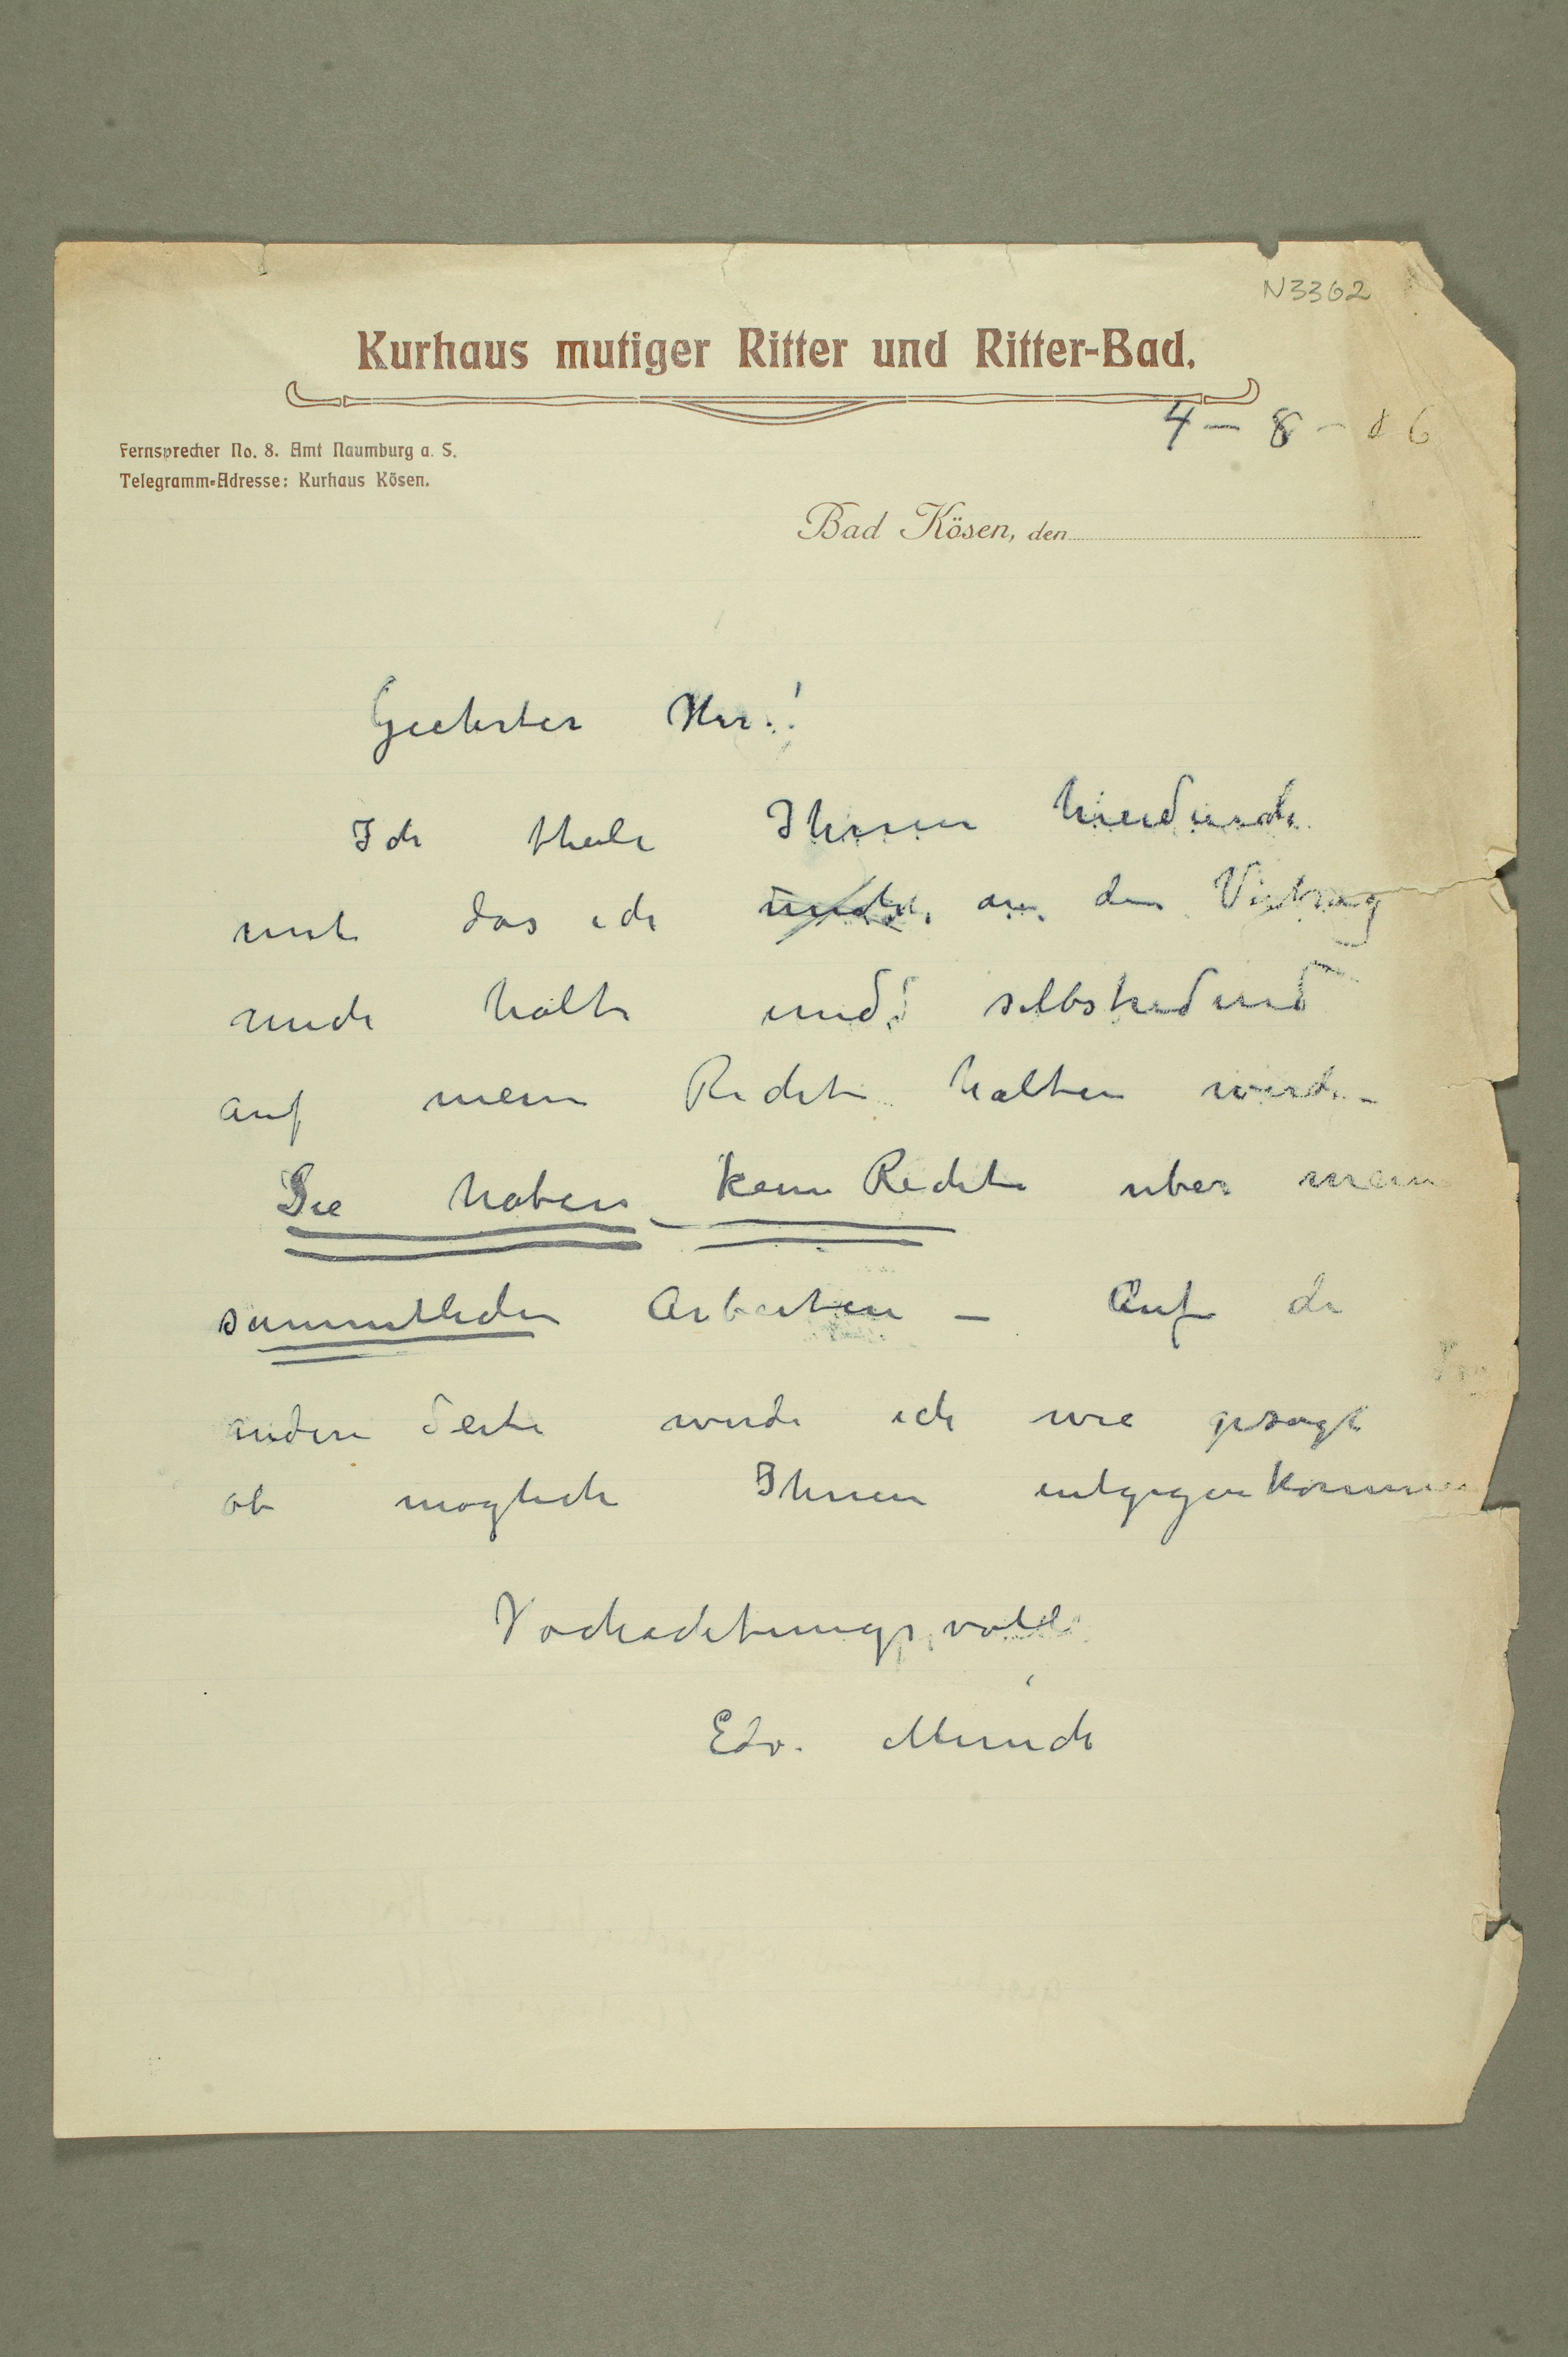 N3362
Kurhaus mutiger Ritter und Ritter-Bad.
4 – 8 – 06
Fernsprecher No. 8. Amt Naumburg a. S.
Telegramm-Adresse: Kurhaus Kösen.
Bad Kösen, den
Geehrter Herr!
Ich theile Ihnen hierdurch
mit das ich an den Vertrag
mich halte und selbstredend
auf mein Rechte halten werde –
Sie haben kein Rechte uber meine
sammtlichen Arbeiten – Auf de
andere Seite werde ich wie gesagt
ob moglich Ihnen entgegenkommen
Hochachtungsvoll
Edv. Munch